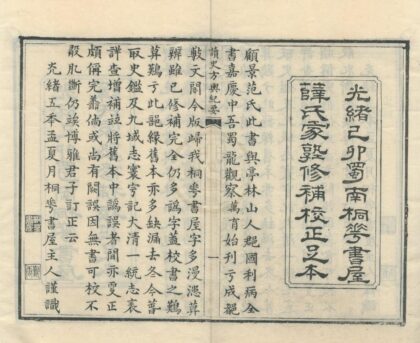 光緒己卯蜀南桐華書屋
薛氏家塾修補校正足本
顧景范氏此書與亭林山人郡國利病全
書嘉慶中吾蜀龍觀察萬育始刊亏成都
讀史方輿紀要
一
敷文閣今版歸我桐華書屋字多漫漶
雖已修補完全仍多譌字蓋校書之難
難亏此緣舊本亦多缺漏去冬今
取史鑑及九域志寰宇記大清一統志
詳查增補並將舊本中譌誤者間亦更正
頗偁完善倘或尚有闕誤因無書可校不
敢肊斷仍竢博雅君子訂正云
光緒五年孟夏月桐華書屋主人謹識